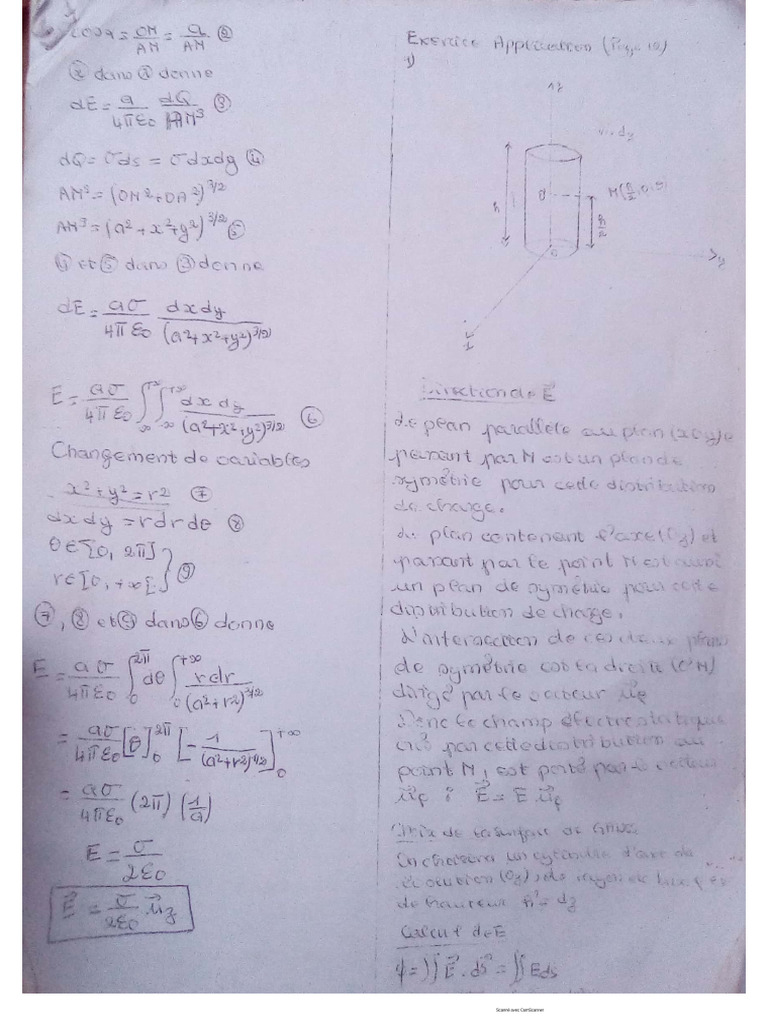 cosα = OM/AM = a/AM ②
② dans ① donne
dE = a/4πε0 dQ/AM³ ③
dQ = σds = σdxdy ④
AM³ = (OM²+OA²)^3/2
AM³ = (a²+x²+y²)^3/2 ⑤
④ et ⑤ dans ③ donne
dE = aσ/4πε0 dxdy/(a²+x²+y²)^3/2
E = aσ/4πε0 ∫-∞+∞ ∫-∞+∞ dxdy/(a²+x²+y²)^3/2 ⑥
Changement de variables
x²+y² = r² ⑦
dxdy = rdrdθ ⑧
θ∈[0, 2π]
r∈[0, +∞[ } ⑨
⑦, ⑧ et ⑨ dans ⑥ donne
E = aσ/4πε0 ∫0 2π dθ ∫0 +∞ rdr/(a²+r²)^3/2
= aσ/4πε0 [θ]0 2π [-1/(a²+r²)^1/2]0 +∞
= aσ/4πε0 (2π) (1/a)
E = σ/2ε0
E⃗ = σ/2ε0 u⃗z
Exercice Application (Page 10)
1)
z
h
O'
M
h/2
O
y
x
Direction de E⃗
Le plan parallèle au plan (xoy) et
passant par M est un plan de
symétrie pour cette distribution
de charge.
Le plan contenant l'axe (Oz) et
passant par le point M est aussi
un plan de symétrie pour cette
distribution de charge.
L'intersection de ces deux plans
de symétrie est la droite (O'M)
dirigé par le vecteur u⃗ρ
Donc le champ électrostatique
créé par cette distribution au
point M, est porté par le vecteur
u⃗ρ : E⃗ = E u⃗ρ
Choix de la surface de GAUSS
On choisira un cylindre d'axe de
révolution (Oz), de rayon
de hauteur h' = dz
Calcul de E
φ = ∬ E⃗.ds⃗ = ∬ Eds
Scanné avec CamScanner